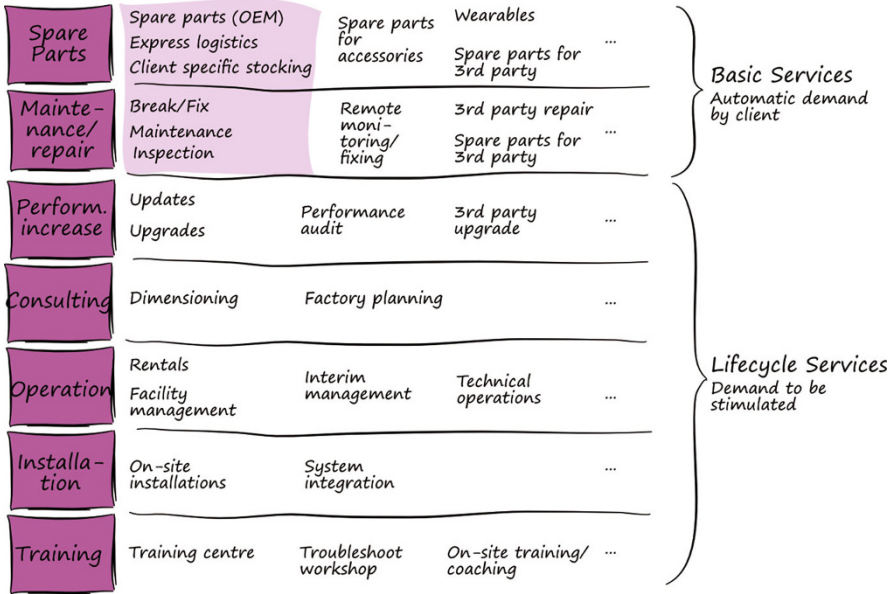 Spare
Parts
Spare parts (OEM)
Express logistics
Client specific stocking
Spare parts
for
accessories
Wearables
Spare parts for
3rd party
...
Mainte-
nance/
repair
Break/Fix
Maintenance
Inspection
Remote
moni-
toring/
fixing
3rd party repair
Spare parts for
3rd party
...
Basic Services
Automatic demand
by client
Perform.
increase
Updates
Upgrades
Performance
audit
3rd party
upgrade
...
Consulting
Dimensioning
Factory planning
...
Operation
Rentals
Facility
management
Interim
management
Technical
operations
...
Installa-
tion
On-site
installations
System
integration
...
Training
Training centre
Troubleshoot
workshop
On-site training/
coaching
...
Lifecycle Services
Demand to be
stimulated